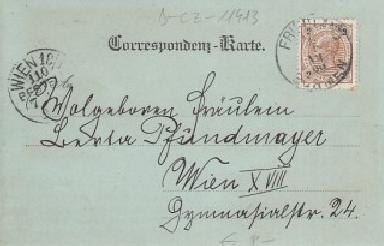 CZ-11413
Correspondenz-Karte.
WIEN
110
Wolgeboren Fräulein
Berta Pfundmayer
Wien XVIII
Gymnasialstr. 24.